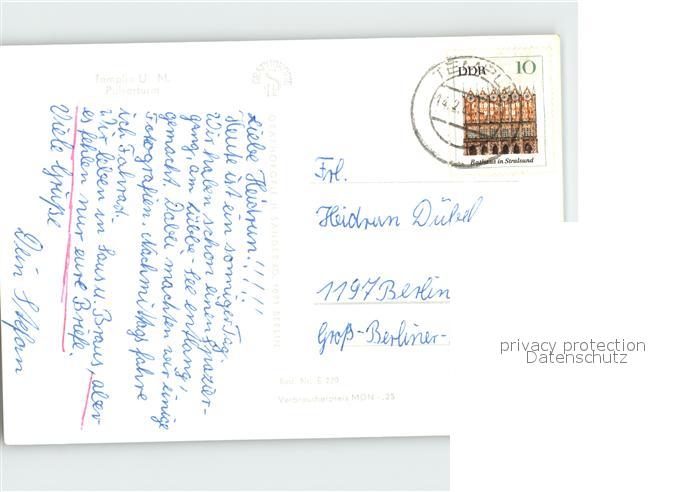 Templin U. M.
Pulverturm
Liebe Heidrun!!!!!
Heute ist ein sonniger Tag.
Wir haben schon einen Spazier-
gang, am Lübbe-See entlang,
gemacht. Dabei machten wir einige
Fotografien. Nachmittags fahre
ich Fahrrad.
Wir leben in Saus u. Braus, aber
es fehlen nur eure Briefe.
Viele Grüße
Dein Stefan
1017 BERLIN
Best. Nr. E 170
Verbraucherpreis MDN -,25
TEMPLIN
14.2.
DDR 10
Rathaus in Stralsund
Frl.
Heidrun Dübel
1197 Berlin
Groß-Berliner-
privacy protection
Datenschutz